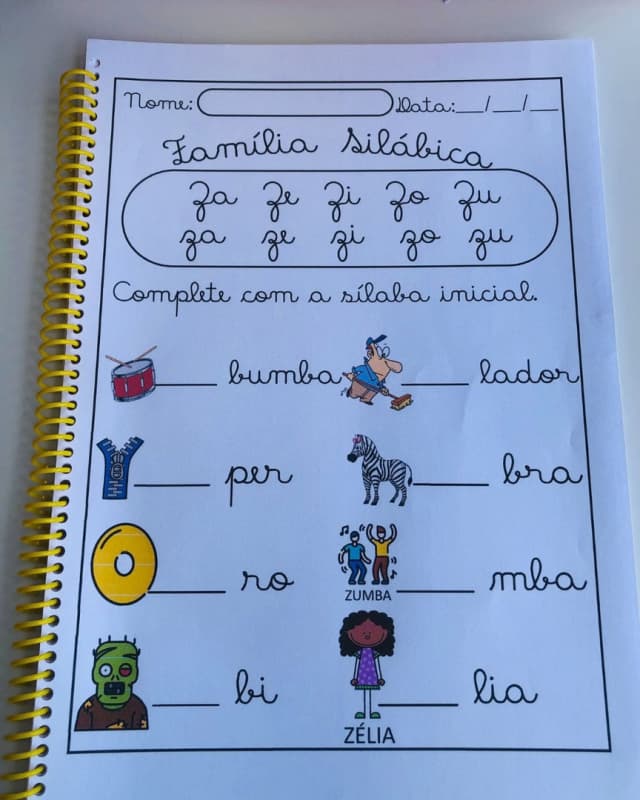 Nome: Data:__/__/__
Família Silábica
Za Ze Zi Zo Zu
za ze zi zo zu
Complete com a sílaba inicial.
____ bumba ____ lador
____ per ____ bra
0 ____ ro ____ mba
ZUMBA
____ bi ____ lia
ZÉLIA